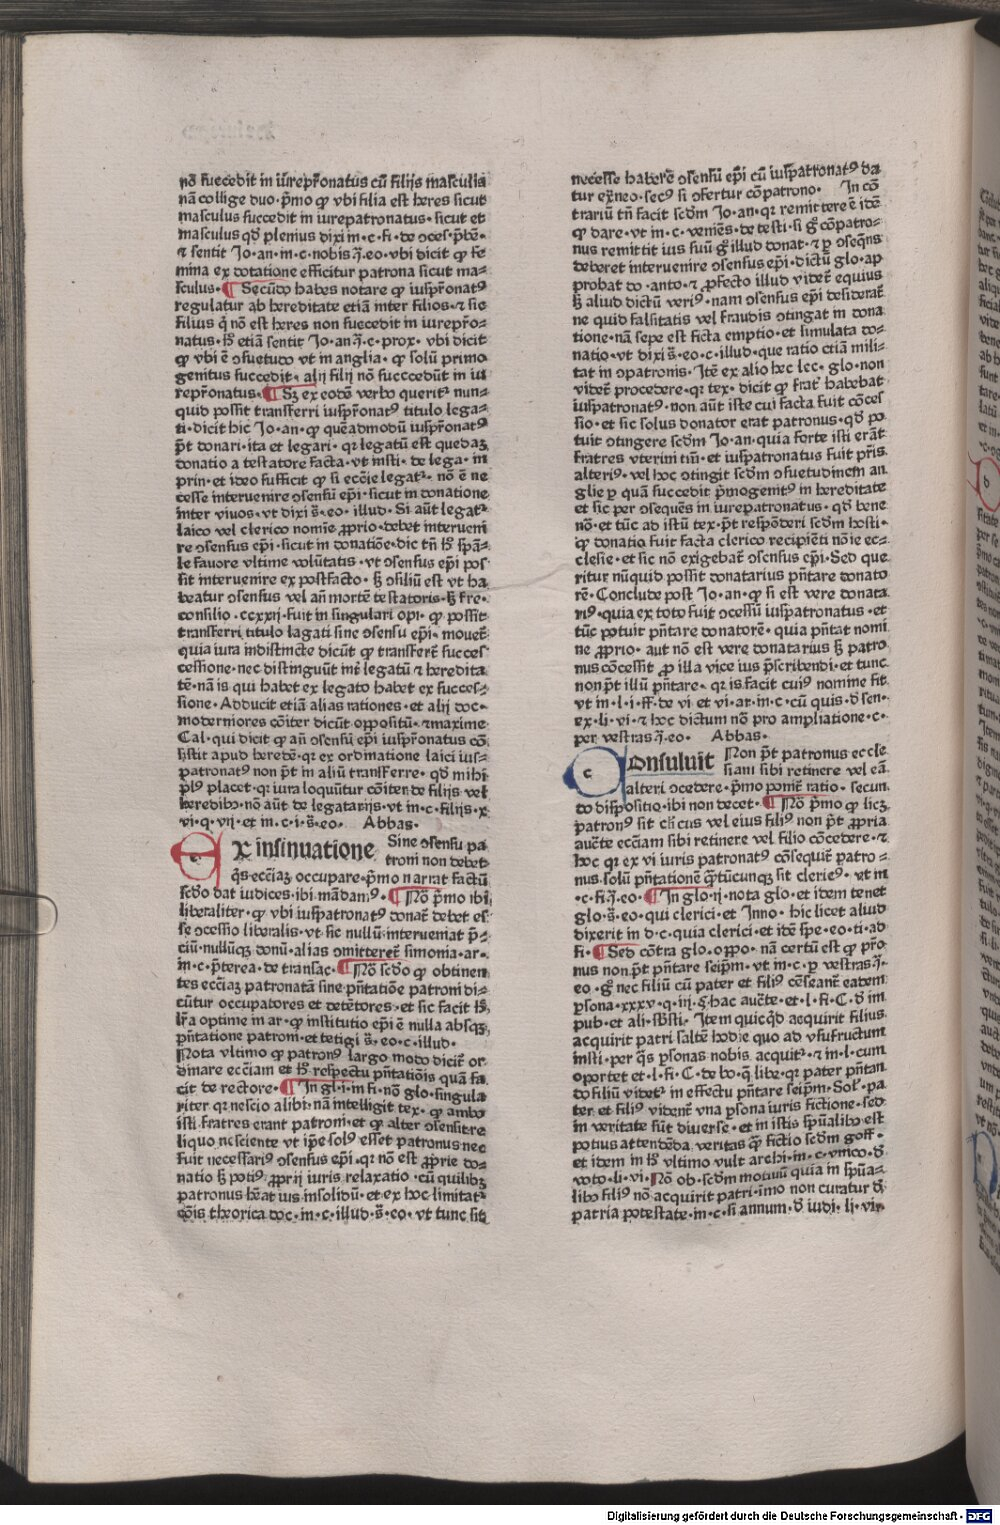 nō succedit in iurepr̄onatus cū filijs masculis
nā collige duo· p̄mo ꝙ vbi filia est heres sicut
masculus succedit in iurepatronatus· sicut et
masculus qd̄ plenius dixi in·c·fi·de ɔces·p̄bē·
⁊ sentit Jo·an·in·c·nobis ī·eo·vbi dicit ꝙ fe
mina ex dotatione efficitur patrona sicut ma⸗
sculus· ¶ Secūdo habes notare ꝙ iuspr̄onatꝰ
regulatur ab hereditate etiā inter filios·⁊ sic
filius q̄ nō est heres non succedit in iurepr̄o⸗
natus· h̄ etiā sentit Jo·an ī·c·prox· vbi dicit
ꝙ vbi ē ɔsuetudo vt in anglia· ꝙ solū primo
genitus succedit· alij filij nō succedūt in iu
repr̄onatus· ¶ Sꝫ ex eodē verbo queritᷣ nun⸗
quid possit transferri iuspr̄onatꝰ titulo lega⸗
ti·dicit hic Jo·an·ꝙ quēadmodū iuspr̄onatꝰ
p̄t donari·ita et legari· qꝛ legatū est quedaꝫ
donatio a testatore facta·vt insti·de lega·in
prin·et ideo sufficit ꝙ si eccl̄ie legatᷣ· nō ē ne
cesse interuenire ɔsensū ep̄i·sicut in donatione
inter viuos·vt dixi s̄·eo·illud· Si aūt legatᷣ
laico vel clerico nomīe ꝓprio·debet interueni
re ɔsensus ep̄i·sicut in donatiōe·dic tn̄ h̄ spā⸗
le fauore vltime volūtatis·vt ɔsensus ep̄i pos
sit interuenire ex postfacto·ꝫ ɔsiliū est vt ha
beatur ɔsensus vel an̄ mortē testatoris·ꝫ fre·
consilio·ccxxij·fuit in singulari opi·ꝙ possit
transferri titulo lagati sine ɔsensu ep̄i·mouet᷑
quia iura indistincte dicūt ꝙ transferr̄ succes
cessione·nec distinguūt int̄ legatū ⁊ heredita
tē·nā is qui habet ex legato habet ex succes⸗
sione·Adducit etiā alias rationes·et alij doc⸗
moderniores cōiter dicūt oppositū·⁊maxime
Cal·qui dicit ꝙ an̄ ɔsensū ep̄i iuspr̄onatus cō
sistit apud heredē·qꝛ ex ordinatione laici ius⸗
patronatꝰ non p̄t in aliū transferre· qd̄ mihi
plꝰ placet·qꝛ iura loquūtur cōiter de filijs vel
heredibꝰ·nō aūt de legatarijs·vt in·c·filijs·x
vi·q·vij·et in·c·i·s̄·eo· Abbas·
Ex insinuatione Sine ɔsensu pa
troni non debet
q̄s eccl̄iaꝫ occupare·p̄mo narrat factū
scd̄o dat iudices·ibi mādamꝰ· ¶ Nō p̄mo ibi
liberaliter·ꝙ vbi iuspatronatꝰ donat᷑ debet es⸗
se ɔcessio liberalis·vt sic nullū interueniat p̄⸗
ciū·nullūqꝫ donū·alias omitteret᷑ simonia·ar·
in·c·p̄terea·de transac· ¶ Nō scd̄o ꝙ obtinen
tes eccl̄iaꝫ patronatā sine p̄ntatiōe patroni di⸗
cūtur occupatores et detētores·et sic facit h̄
l̄r̄a optime in ar·ꝙ institutio ep̄i ē nulla absqꝫ
p̄ntatione patroni·et tetigi s̄·eo·c·illud·
Nota vltimo ꝙ patronꝰ largo modo dicit᷑ or
dinare eccl̄iam et h̄ respectu p̄ntatiōis quā fa
cit de rectore· ¶ In gl·i·in fi·nō glo·singula
riter qꝛ nescio alibi·nā intelligit tex·ꝙ ambo
isti fratres erant patroni·et ꝙ alter ɔsensit·re
liquo nesciente vt ip̄e solꝰ esset patronus nec
fuit necessariꝰ ɔsensus ep̄i·qꝛ nō est ꝓprie do⸗
natio ꝫ potiꝰ ꝓprij iuris relaxatio·cū quilibꝫ
patronus hēat ius insolidū·et ex hoc limitatᷣ
cōis theorica doc·in·c·illud·s̄·eo·vt tunc sit
necesse haberē ɔsensū ep̄i cū iuspatronatꝰ da
tur ex̄neo·secꝰ si ɔfertur cōpatrono· In cō
trariū tn̄ facit scd̄m Jo·an·qꝛ remittere ē idē
ꝙ dare·vt in·c·veniēs·de testi·si gͦ cōpatro⸗
nus remittit ius suū gͦ illud donat·⁊ ꝑ ɔseqn̄s
deberet interuenire ɔsensus ep̄i·dictū glo·ap
probat do·anto·⁊ ꝓfecto illud videt᷑ equius
ꝫ aliud dictū veriꝰ·nam ɔsensus ep̄i desiderat᷑
ne quid falsitatis vel fraudis ɔtingat in dona
tione·nā sepe est ficta emptio·et simulata do⸗
natio·vt dixi s̄·eo·c·illud·que ratio etiā mili⸗
tat in ɔpatronis· Itē ex alio hec lec· glo·non
videt᷑ procedere·qꝛ tex·dicit ꝙ frat᷑ habebat
iuspatronatꝰ·non aūt iste cui facta fuit cōces
sio·et sic solus donator erat patronus·qd̄ po⸗
tuit ɔtingere scd̄m Jo·an·quia forte isti erāt
fratres vterini tm̄·et iuspatronatus fuit pr̄is
alteriꝰ·vel hoc ɔtingit scd̄m ɔsuetudinem an
glie ꝑ quā succedit p̄mogenitꝰ in hereditate
et sic per ɔsequēs in iurepatronatus·qd̄ bene
nō·et tūc ad istū tex·p̄t respōderi scd̄m hosti·
ꝙ donatio fuit facta clerico recipiēti nōie ec⸗
clesie·et sic nō exigebat᷑ ɔsensus ep̄i·Sed que
ritur nūquid possit donatarius p̄ntare donato
rē·Conclude post Jo·an·ꝙ si est vere donata
riꝰ·quia ex toto fuit ɔcessū iuspatronatus·et
tūc potuit p̄ntare donatorē· quia p̄ntat nomi
ne ꝓprio· aut nō est vere donatarius ꝫ patro
nus cōcessit ꝓ illa vice ius p̄scribendi·et tunc
non p̄t illū p̄ntare· qꝛ is facit cuiꝰ nomine fit
vt in·l·i·ff·de vi et vi·ar·in·c·cū quis·d̄ sen·
ex·li·vi·⁊ hoc dictum nō pro ampliatione·c·
per vestras ī·eo· Abbas·
Consuluit Non p̄t patronus eccle
siam sibi retinere vel eā
alteri ɔcedere·p̄mo ponit᷑ ratio·secun
do dispositio·ibi non decet· ¶ Nō p̄mo ꝙ licꝫ
patronꝰ sit cl̄icus vel eius filiꝰ non p̄t ꝓpria
auct̄e eccl̄iam sibi retinere vel filio cōcedere·⁊
hoc qꝛ ex vi iuris patronatꝰ cōsequit᷑ patro⸗
nus·solū p̄ntationē q̄tūcunqꝫ sit clericꝰ· vt in
·c·fi ī·eo· ¶ In glo·ij·nota glo·et idem tenet
glo·s̄·eo·qui clerici·et Inno· hic licet aliud
dixerit in d·c·quia clerici·et idē spe·eo·ti·ad
fi· ¶ Sed cōtra glo·oppo·nā certū est ꝙ pr̄o
nus non p̄t p̄ntare seip̄m·vt in·c·ꝑ vestras·ī·
eo·gͦ nec filiū cū pater et filiꝰ cēseant᷑ eadem
ꝑsona·xxxv·q·iij·§·hac auct̄e·et·l·fi·C·d̄ im
pub·et ali·sb̄sti· Item quicq̄d acquirit filius
acquirit patri saltē hodie quo ad vsufructum
insti·per q̄s ꝑsonas nobis acquitᷣ·⁊ in·l·cum
oportet et·l·fi·C·de bo·q̄ libe·qꝛ pater p̄ntan
do filiū videt᷑ in effectu p̄ntare seip̄m·Sol·pa⸗
ter et filiꝰ vident᷑ vna ꝑsona iuris fictione·sed
in veritate sūt diuerse·et in istis sp̄ualibꝰ est
potius attendēda veritas q̄ fictio scd̄m goff·
et idem in h̄ vltimo vult archi·in·c·vnico·d̄
voto·li·vi·Nō ob·scd̄m motiuū quia in sp̄ua⸗
libꝰ filiꝰ nō acquirit patri·imo non curatur d̄
patria potestate·in·c·si annum·d̄ iudi·li·vi·
Digitalisierung gefördert durch die Deutsche Forschungsgemeinschaft - DFG